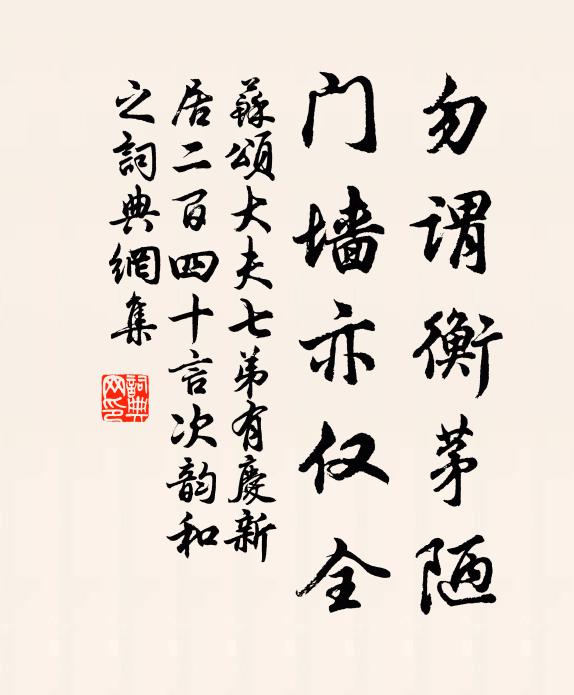 勿谓衡茅陋
门墙亦仅全
蘇頌大夫七弟有慶新
居二百四十言次韵和
之詞典網集
詞典
网印